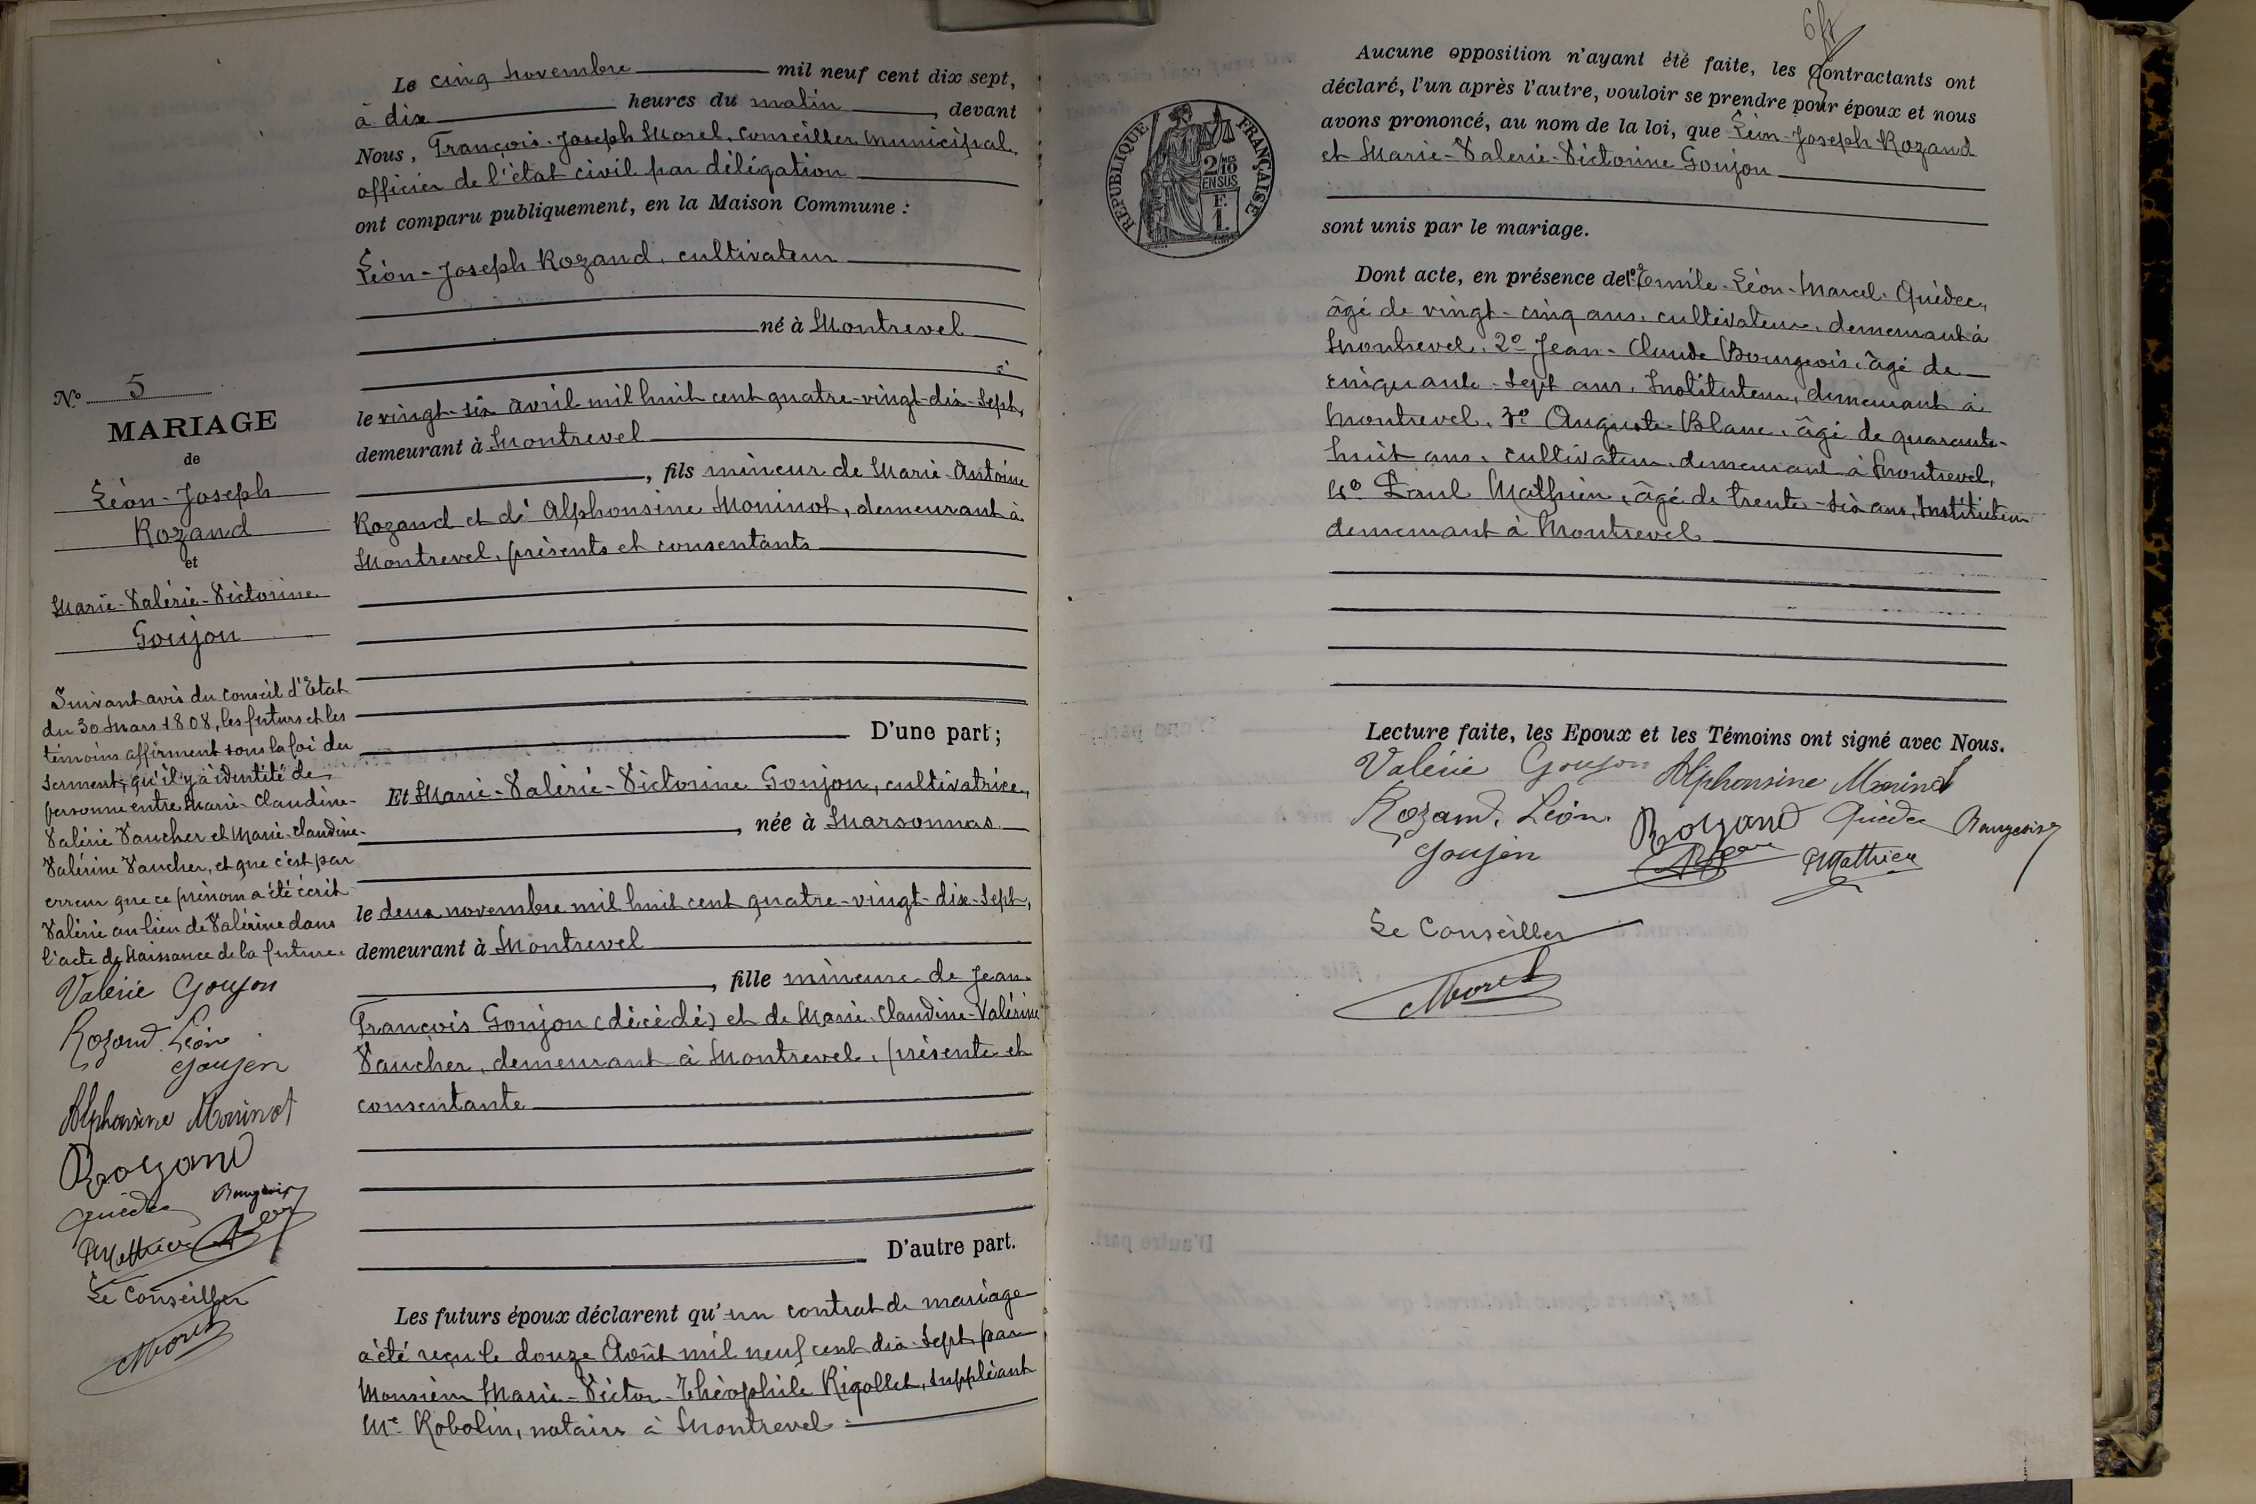 Le cinq novembre mil neuf cent dix sept,
à dix heures du matin, devant
Nous, François-Joseph Morel, conseiller municipal,
officier de l'état civil par délégation
ont comparu publiquement, en la Maison Commune :
Léon-Joseph Rozand, cultivateur
né à Montrevel
le vingt-six avril mil huit cent quatre-vingt-dix-sept,
demeurant à Montrevel
, fils mineur de Marie-Antoine
Rozand et de Alphonsine Moninot, demeurant à
Montrevel, présents et consentants
D'une part ;
Et Marie-Valérie-Victorine Goujon, cultivatrice,
, née à Marsonnas
le deux novembre mil huit cent quatre-vingt-dix-sept,
demeurant à Montrevel
, fille mineure de Jean-
François Goujon (décédé) et de Marie-Claudine-Valérine
Vaucher, demeurant à Montrevel, présente et
consentante
D'autre part.
Les futurs époux déclarent qu'un contrat de mariage
a été reçu le douze Août mil neuf cent dix-sept par
Monsieur Marie-Victor-Théophile Rigollet, suppléant
Me Robolin, notaire à Montrevel
No 5
MARIAGE
de
Léon-Joseph
Rozand
et
Marie-Valérie-Victorine
Goujon
Suivant avis du conseil d'Etat
du 30 Mars 1808, les futurs et les
témoins affirment sous la foi du
serment, qu'il y a identité de
personne entre Marie-Claudine-
Valérie Vaucher et Marie-Claudine-
Valérine Vaucher, et que c'est par
erreur que ce prénom a été écrit
Valérie au lieu de Valérine dans
l'acte de Naissance de la future.
Valérie Goujon
Rozand Léon
Goujon
Alphonsine Moninot
Rozand
Quédec Bourgeois
P Mathieu
Le Conseiller
Morel
RÉPUBLIQUE FRANÇAISE
2/10
EN SUS
F.
1.
Aucune opposition n'ayant été faite, les Contractants ont
déclaré, l'un après l'autre, vouloir se prendre pour époux et nous
avons prononcé, au nom de la loi, que Léon-Joseph Rozand
et Marie-Valérie-Victorine Goujon
sont unis par le mariage.
Dont acte, en présence de 1º Emile-Léon-Marcel Quédec,
âgé de vingt-cinq ans, cultivateur, demeurant à
Montrevel, 2º Jean-Claude Bourgeois, âgé de
cinquante-sept ans, Instituteur, demeurant à
Montrevel, 3º Auguste Blanc, âgé de quarante-
huit ans, cultivateur demeurant à Montrevel,
4º Paul Mathieu, âgé de trente-six ans, Instituteur
demeurant à Montrevel
Lecture faite, les Epoux et les Témoins ont signé avec Nous.
Valérie Goujon Alphonsine Moninot
Rozand Léon Rozand Quédec Bourgeois
Goujon P Mathieu
Le Conseiller
Morel